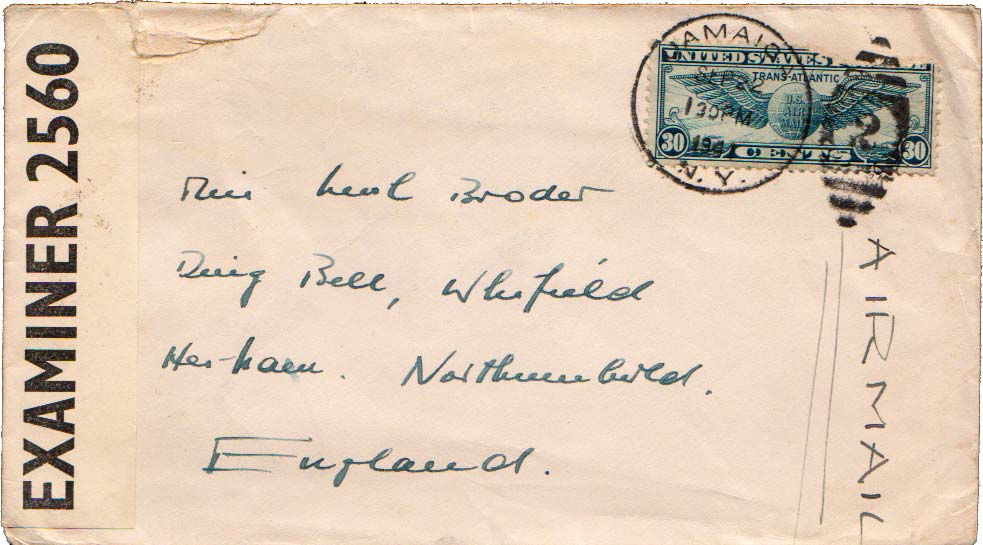 EXAMINER 2560
JAMAICA
SEP 22
1 30 PM
194
N.Y.
UNITED STATES
TRANS-ATLANTIC
U.S.
AIR
MAIL
30 CENTS 30
2
Broder
Bell, Whifield
Northumberld.
England.
AIRMAIL